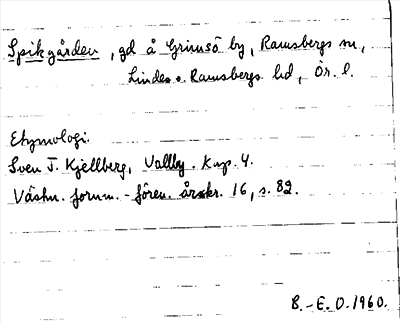 Spikgården, gd å Grimsö by, Ramsbergs sn,
Lindes o. Ramsbergs hd, Ör. l.
Etymologi.
Sven T. Kjellberg, Vallby. Kap. 4.
Västm. fornm.-fören. årskr. 16, s. 82.
B.-E. O. 1960.